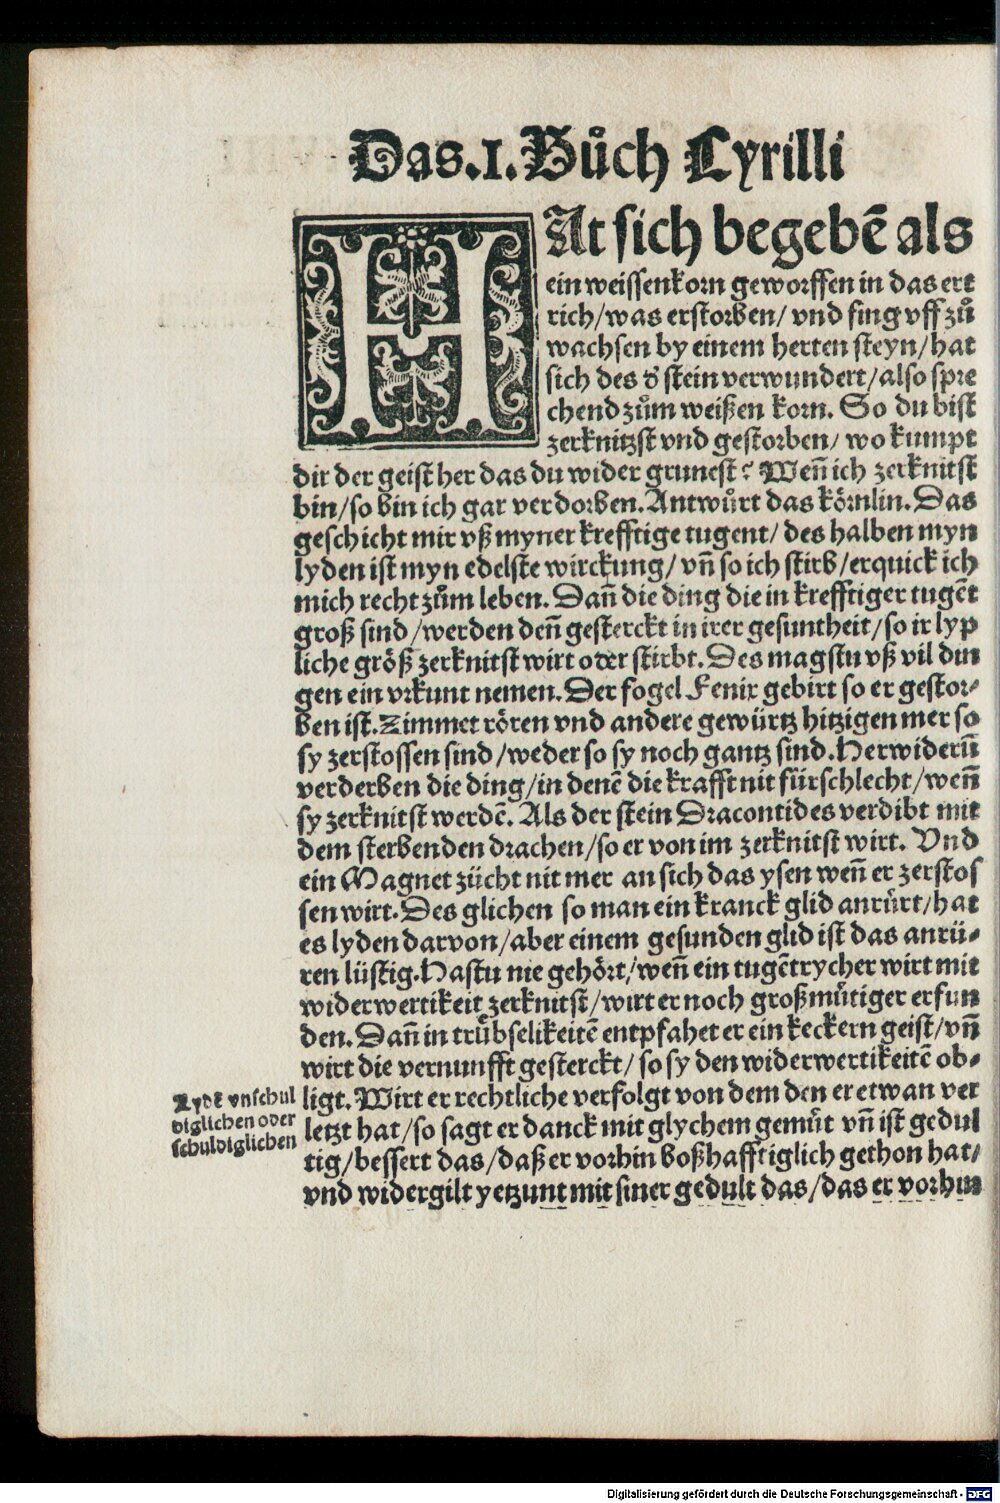 Das.I.Bůch Cyrilli
HAt sich begebē als
ein weissenkorn geworffen in das ert
rich/was erstorben/ vnd fing vff zů
wachsen by einem herten steyn/hat
sich des d̕ stein verwundert/also spre
chend zům weißen korn. So du bist
zerknitzst vnd gestorben/ wo kumpt
dir der geist her das du wider grunest? Weñ ich zerknitst
bin/so bin ich gar verdorben. Antwůrt das körnlin. Das
geschicht mir vß myner krefftige tugent/ des halben myn
lyden ist myn edelste wirckung/ vñ so ich stirb/erquick ich
mich recht zům leben. Dañ die ding die in krefftiger tugēt
groß sind/werden deñ gesterckt in irer gesuntheit/so ir lyp
liche größ zerknitst wirt oder stirbt. Des magstu vß vil din
gen ein vrkunt nemen. Der fogel Fenix gebirt so er gestor⸗
ben ist. Zimmet rören vnd andere gewürtz hitzigen mer so
sy zerstossen sind/weder so sy noch gantz sind. Herwiderũ
verderben die ding/in denē die krafft nit fürschlecht/weñ
sy zerknitst werdē. Als der stein Dracontides verdibt mit
dem sterbenden drachen/so er von im zerknitst wirt. Vnd
ein Magnet zücht nit mer an sich das ysen weñ er zerstos
sen wirt. Des glichen so man ein kranck glid anrürt/hat
es lyden darvon/aber einem gesunden glid ist das anrü⸗
ren lüstig. Hastu nie gehört/weñ ein tugētrycher wirt mit
widerwertikeit zerknitst/wirt er noch großmütiger erfun
den. Dañ in trübselikeitē entpfahet er ein keckern geist/vñ
wirt die vernunfft gesterckt/ so sy den widerwertikeitē ob⸗
ligt. Wirt er rechtliche verfolgt von dem den er etwan ver
letzt hat/so sagt er danck mit glychem gemüt vñ ist gedul
tig/bessert das/daß er vorhin boßhafftiglich gethon hat/
vnd widergilt yetzunt mit siner gedult das/das er vorhin
Lydē vnschul
diglichen oder
schuldiglichen
Digitalisierung gefördert durch die Deutsche Forschungsgemeinschaft - DFG